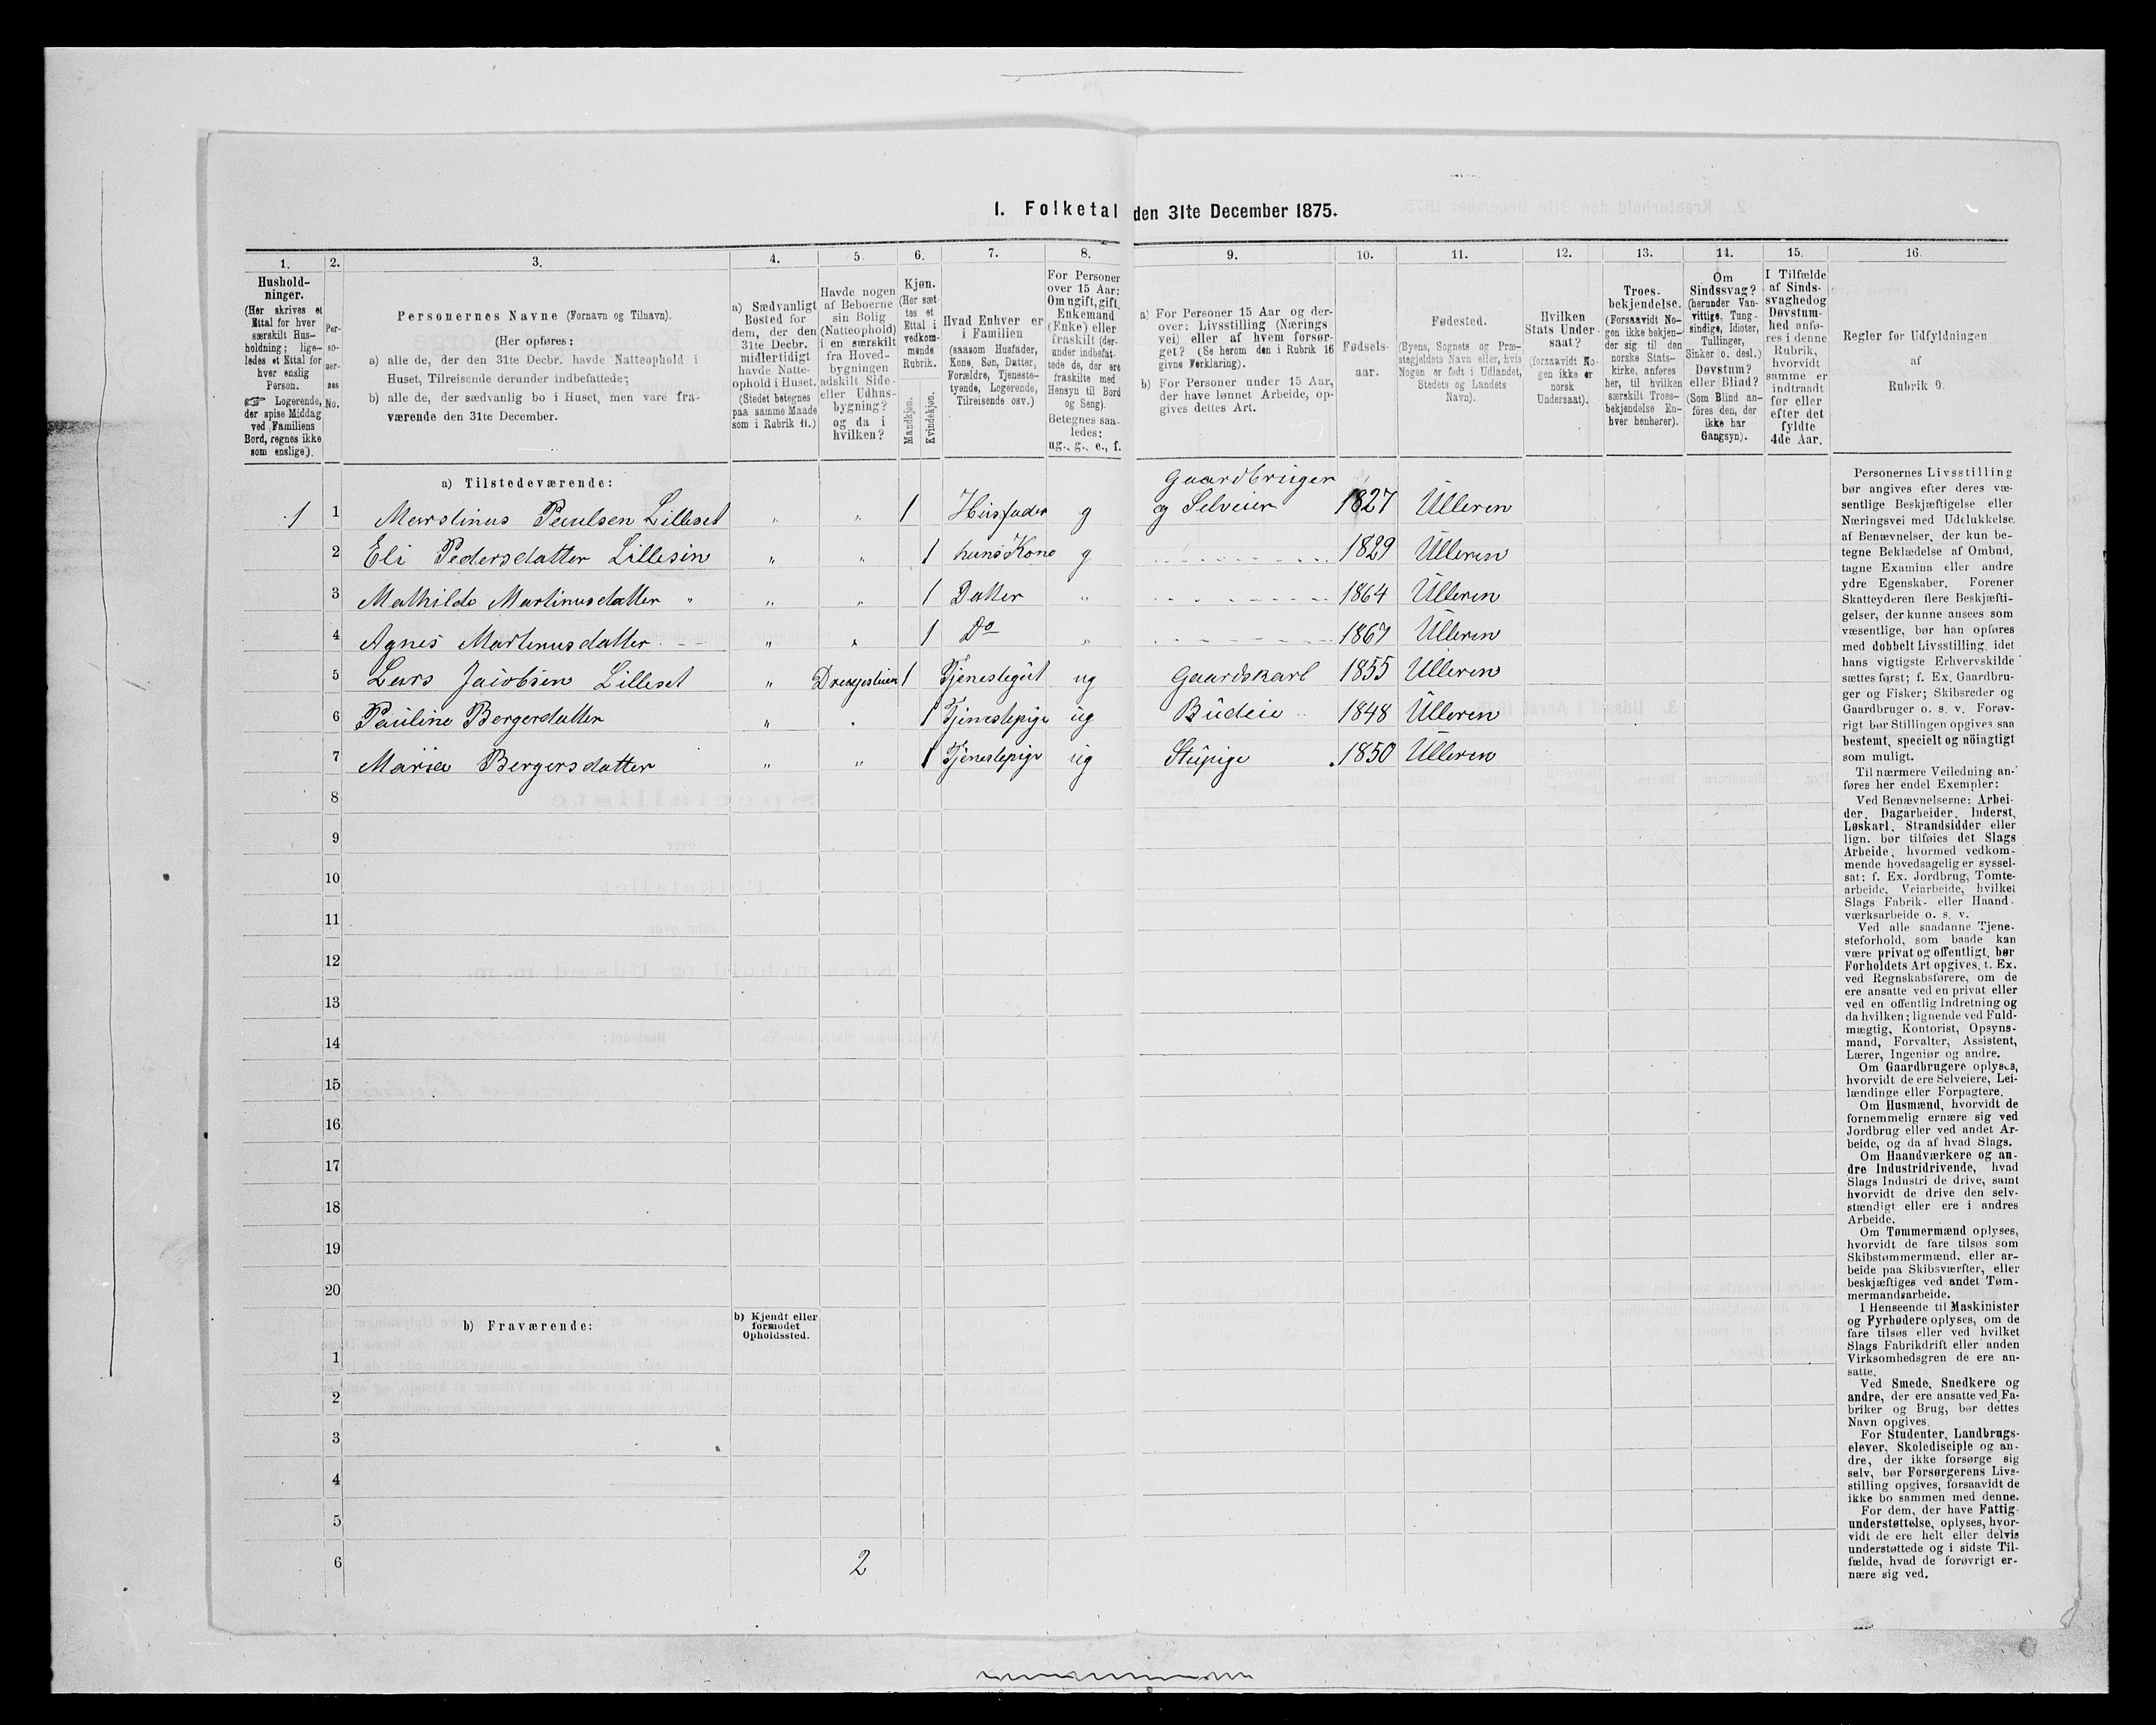 1. Folketal den 31te December 1875.
1.
2.
3.
4.
5.
6.
7.
8.
9.
10.
11.
12.
13.
14.
15.
16.
Hushold-
ninger.
(Her skrives et
Ettal for hver
særskilt Hus-
holdning; lige-
ledes et Ettal for
hver enslig
Person.
☞ Logerende,
der spise Middag
ved Familiens
Bord, regnes ikke
som enslige).
Per-
so-
ner-
nes
No.
Personernes Navne (Fornavn og Tilnavn).
(Her opføres:
a) alle de, der den 31te Decbr. havde Natteophold i
Huset, Tilreisende derunder indbefattede;
b) alle de, der sædvanlig bo i Huset, men vare fra-
værende den 31te December.
a) Sædvanligt
Bosted for
dem, der den
31te Decbr.
midlertidigt
havde Natte-
ophold i Huset.
(Stedet betegnes
paa samme Maade
som i Rubrik 11.)
Havde nogen
af Beboerne
sin Bolig
(Natteophold)
i en særskilt
fra Hoved-
bygningen
adskilt Side-
eller Udhus-
bygning?
og da i
hvilken?
Kjøn.
(Her sæt-
tes et
Ettal i
vedkom-
mende
Rubrik.
Mandkjøn.
Kvindekjøn.
Hvad Enhver er
i Familien
(saasom Husfader,
Kone, Søn, Datter,
Forældre, Tjeneste-
tyende, Logerende,
Tilreisende osv.)
For Personer
over 15 Aar:
Om ugift, gift,
Enkemand
(Enke) eller
fraskilt (der-
under indbefat-
tede de, der ere
fraskilte med
Hensyn til Bord
og Seng).
Betegnes saa-
ledes:
ug., g., e., f.
a) For Personer 15 Aar og der-
over: Livsstilling (Nærings
vei) eller af hvem forsør-
get? (Se herom den i Rubrik 16
givne Forklaring).
b) For Personer under 15 Aar,
der have lønnet Arbeide, op-
gives dettes Art.
Fødsels-
aar.
Fødested.
(Byens, Sognets og Præ-
stegjeldets Navn eller, hvis
Nogen er født i Udlandet,
Stedets og Landets
Navn).
Hvilken
Stats Under-
saat?
(forsaavidt No-
gen ikke er
norsk
Undersaat).
Troes-
bekjendelse.
(Forsaavidt No-
gen ikke bekjen-
der sig til den
norske Stats-
kirke, anføres
her, til hvilken
særskilt Troes-
bekjendelse En-
hver henhører).
Om
Sindssvag?
(herunder Van-
vittige, Tung-
sindige, Idioter,
Tullinger,
Sinker o. desl.)
Døvstum?
eller Blind?
(Som Blind an-
føres den, der
ikke har
Gangsyn).
I Tilfælde
af Sinds-
svaghedog
Døvstum-
hed anfø-
res i denne
Rubrik,
hvorvidt
samme er
indtraadt
før eller
efter det
fyldte
4de Aar.
Regler for Udfyldningen
af
Rubrik 9.
a) Tilstedeværende:
1 1 Marstinus Paulsen Lilleset „ „ 1 Husfader g Gaardbruger
og Selveier 1827 Ulleren
2 Eli Pedersdatter Lillesin „ „ 1 huns Kone g 1829 Ulleren
3 Mathilde Martinusdatter „ „ „ 1 Datter „ 1864 Ulleren
4 Agnes Martinusdatter „ „ 1 Do „ 1867 Ulleren
5 Lars Jacobsen Lilleset „ 1 Tjenestegut ug Gaardskarl 1855 Ulleren
6 Pauline Bergerdatter „ „ 1 Tjenestepige ug Budeie 1848 Ulleren
7 Maria Bergersdatter „ „ 1 Tjenestepige ug Stupige 1850 Ulleren
8
9
10
11
12
13
14
15
16
17
18
19
20
b) Fraværende:
b) Kjendt eller
formodet
Opholdssted.
1
2
3
4
5
6
2
Personernes Livsstilling
bør angives efter deres væ-
sentlige Beskjæftigelse eller
Næringsvei med Udelukkelse
af Benævnelser, der kun be-
tegne Beklædelse af Ombud,
tagne Examina eller andre
ydre Egenskaber. Forener
Skatteyderen flere Beskjæfti-
gelser, der kunne ansees som
væsentlige, bør han opføres
med dobbelt Livsstilling, idet
hans vigtigste Erhvervskilde
sættes først; f. Ex. Gaardbru-
ger og Fisker; Skibsreder og
Gaardbruger o. s. v. Forøv-
rigt bør Stillingen opgives saa
bestemt, specielt og nöiagtigt
som muligt.
Til nærmere Veiledning an-
føres her endel Exempler:
Ved Benævnelserne: Arbei-
der, Dagarbeider, Inderst,
Løskarl, Strandsidder eller
lign. bør tilføies det Slags
Arbeide, hvormed vedkom-
mende hovedsagelig er syssel-
sat; f. Ex. Jordbrug, Tomte-
arbeide, Veiarbeide, hvilket
Slags Fabrik- eller Haand-
værksarbeide o. s. v.
Ved alle saadanne Tjene-
steforhold, som baade kan
være privat og offentligt, bør
Forholdets Art opgives, t. Ex.
ved Regnskabsførere, om de
ere ansatte ved en privat eller
ved en offentlig Indretning og
da hvilken; lignende ved Fuld-
mægtig, Kontorist, Opsyns-
mand, Forvalter, Assistent,
Lærer, Ingeniør og andre.
Om Gaardbrugere oplyses,
hvorvidt de ere Selveiere, Lei-
lændinge eller Forpagtere.
Om Husmænd, hvorvidt de
fornemmelig ernære sig ved
Jordbrug eller ved andet Ar-
beide, og da af hvad Slags.
Om Haandværkere og an-
dre Industridrivende, hvad
Slags Industri de drive, samt
hvorvidt de drive den selv-
stændigt eller ere i andres
Arbeide.
Om Tømmermænd oplyses,
hvorvidt de fare tilsøs som
Skibstømmermænd, eller ar-
beide paa Skibsværfter, eller
beskjæftiges ved andet Tøm-
mermandsarbeide.
I Henseende til Maskinister
og Fyrbødere oplyses, om de
fare tilsøs eller ved hvilket
Slags Fabrikdrift eller anden
Virksomhedsgren de ere an-
satte.
Ved Smede, Snedkere og
andre, der ere ansatte ved Fa-
briker og Brug, bør dettes
Navn opgives.
For Studenter, Landbrugs-
elever, Skoledisciple og an-
dre, der ikke forsørge sig
selv, bør Forsørgerens Livs-
stilling opgives, forsaavidt de
ikke bo sammen med denne.
For dem, der have Fattig-
understøttelse, oplyses, hvor-
vidt de ere helt eller delvis
understøttede og i sidste Til-
fælde, hvad de forøvrigt er-
nære sig ved.